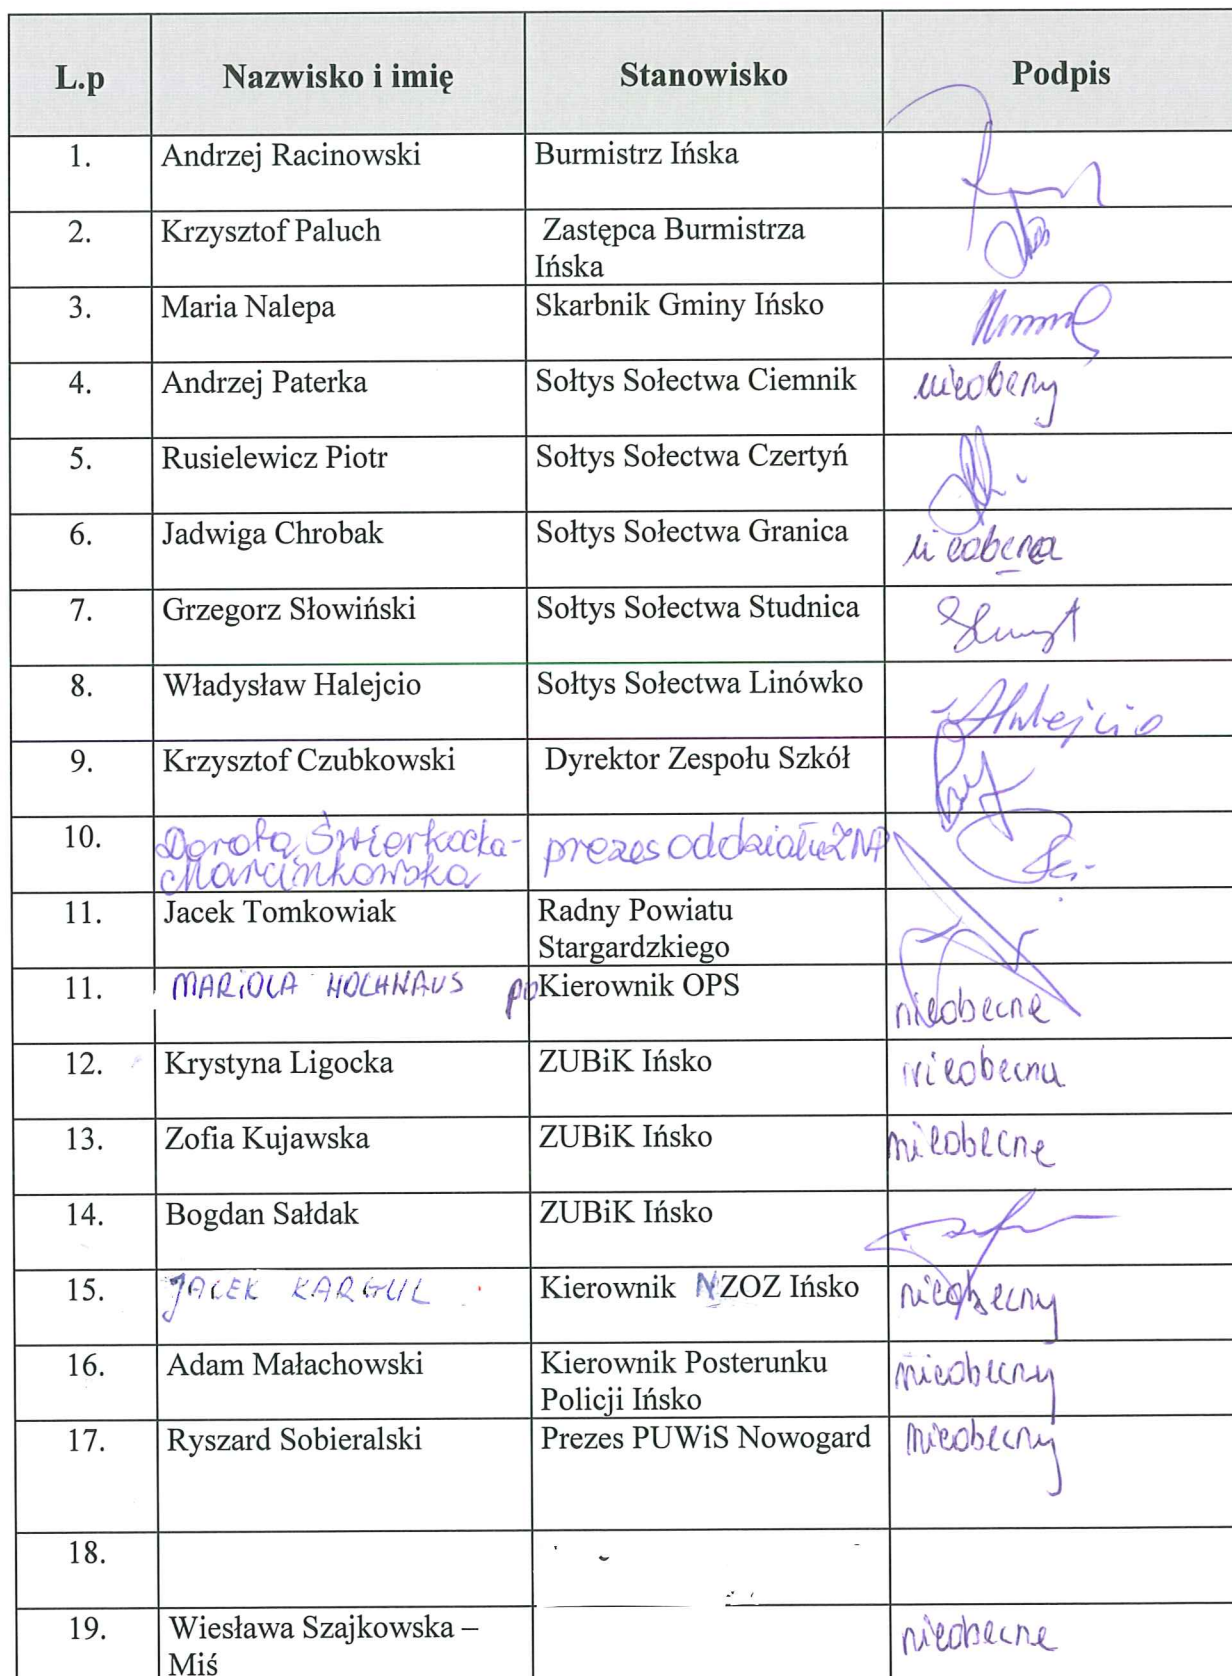 L.p Nazwisko i imię Stanowisko Podpis
1. Andrzej Racinowski Burmistrz Ińska
2. Krzysztof Paluch Zastępca Burmistrza
Ińska
3. Maria Nalepa Skarbnik Gminy Ińsko
4. Andrzej Paterka Sołtys Sołectwa Ciemnik nieobecny
5. Rusielewicz Piotr Sołtys Sołectwa Czertyń
6. Jadwiga Chrobak Sołtys Sołectwa Granica nieobecna
7. Grzegorz Słowiński Sołtys Sołectwa Studnica
8. Władysław Halejcio Sołtys Sołectwa Linówko Halejcio
9. Krzysztof Czubkowski Dyrektor Zespołu Szkół
10. Dorota Świerkocka- prezes oddziału ZNP
Marcinkowska
11. Jacek Tomkowiak Radny Powiatu
Stargardzkiego
11. MARIOLA HOCHHAUS po Kierownik OPS nieobecna
12. Krystyna Ligocka ZUBiK Ińsko nieobecna
13. Zofia Kujawska ZUBiK Ińsko nieobecna
14. Bogdan Sałdak ZUBiK Ińsko
15. JACEK KARGUL Kierownik NZOZ Ińsko nieobecny
16. Adam Małachowski Kierownik Posterunku nieobecny
Policji Ińsko
17. Ryszard Sobieralski Prezes PUWiS Nowogard nieobecny
18.
19. Wiesława Szajkowska – nieobecna
Miś